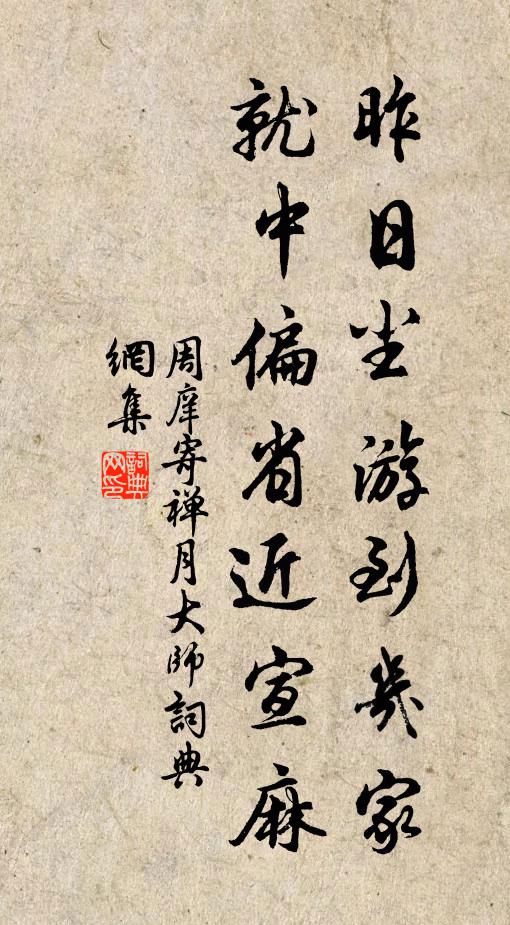 昨日尘游到几家
就中偏省近宣麻
周庠寄禅月大師詞典
網集
詞典
网印